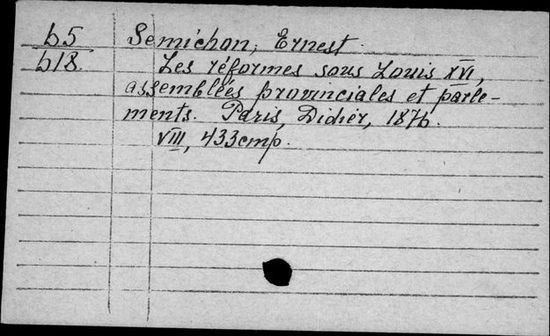 Ь5 Semichon, Ernest.
Ь18. Les réformes sous Louis XVI,
assemblées provinciales et parle-
ments. Paris, Didier, 1876.
VIII, 433 cmp.